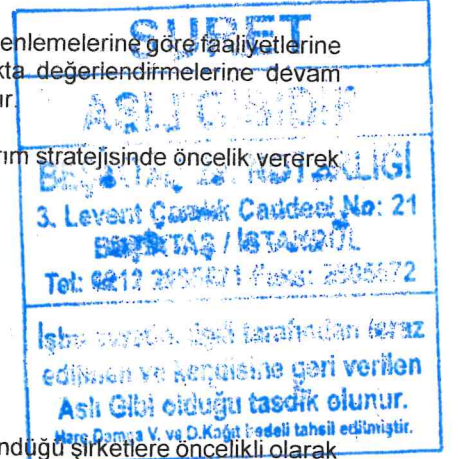 SURET
enlemelerine göre faaliyetlerine
kta değerlendirmelerine devam
ır.
ASLI GİBİDİR
rım stratejisinde öncelik vererek
BEŞİKTAŞ NOTERLİĞİ
3. Levent Çamlık Caddesi No: 21
BEŞİKTAŞ / İSTANBUL
Tel: 0212
İşbu suretin ilgili tarafından ibraz
edilmen ve kendisine geri verilen
Aslı Gibi olduğu tasdik olunur.
Harç Damga V. ve D.Kağıt bedeli tahsil edilmiştir.
ndüğü şirketlere öncelikli olarak